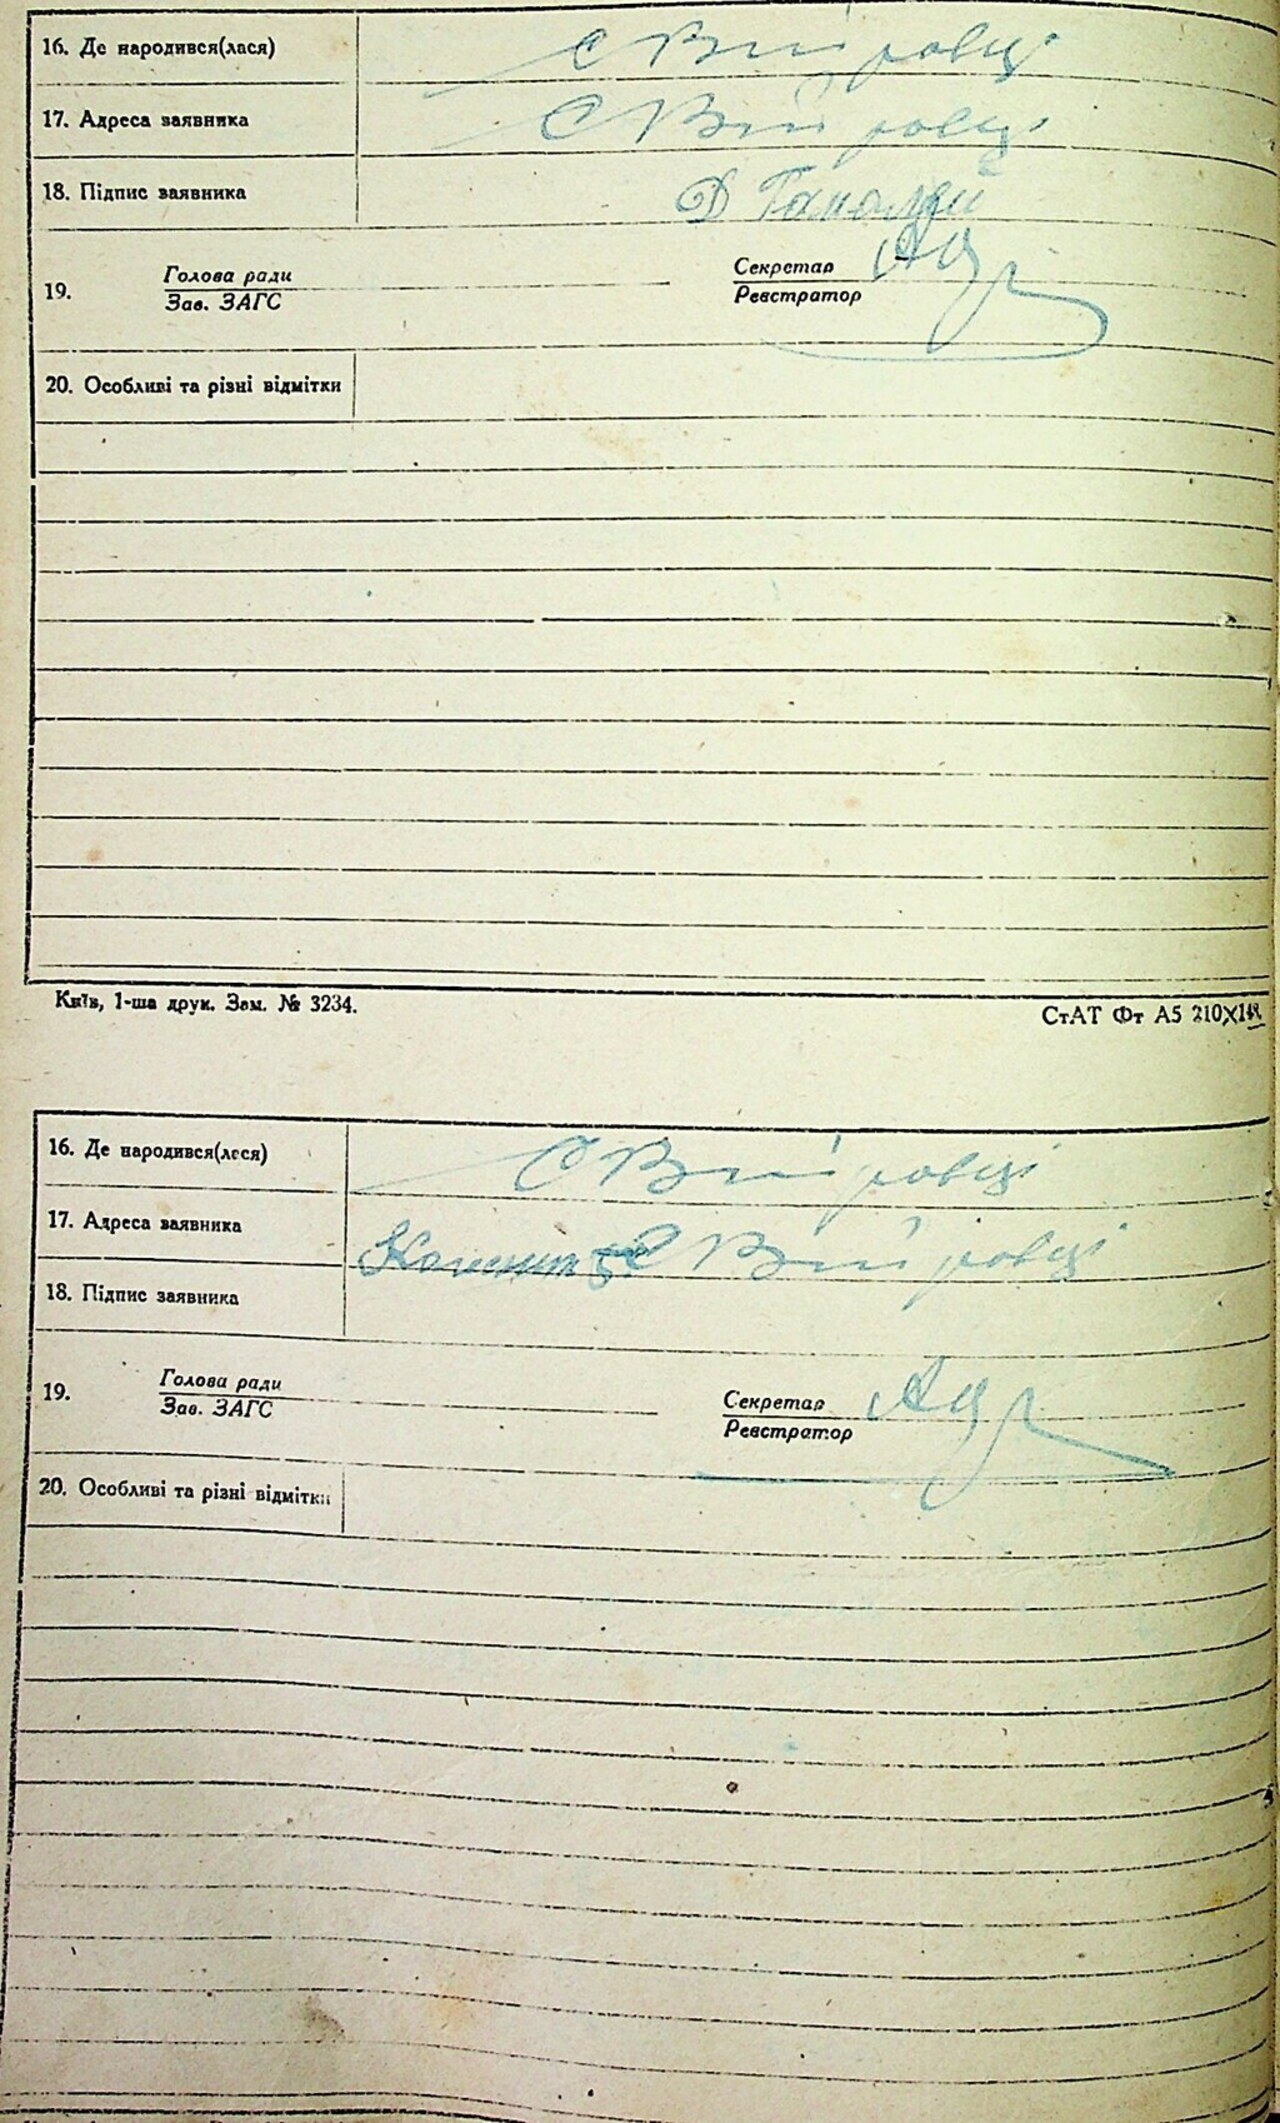 16. Де народився(лася) с Війтовці
17. Адреса заявника с Війтовці
18. Підпис заявника Д
19. Голова ради Секретар
Зав. ЗАГС Реєстратор
20. Особливі та різні відмітки
Київ, 1-ша друк. Зам. № 3234. СтАТ Фт А5 210×148
16. Де народився(лася) с Війтовці
17. Адреса заявника с Війтовці
18. Підпис заявника
19. Голова ради Секретар
Зав. ЗАГС Реєстратор
20. Особливі та різні відмітки